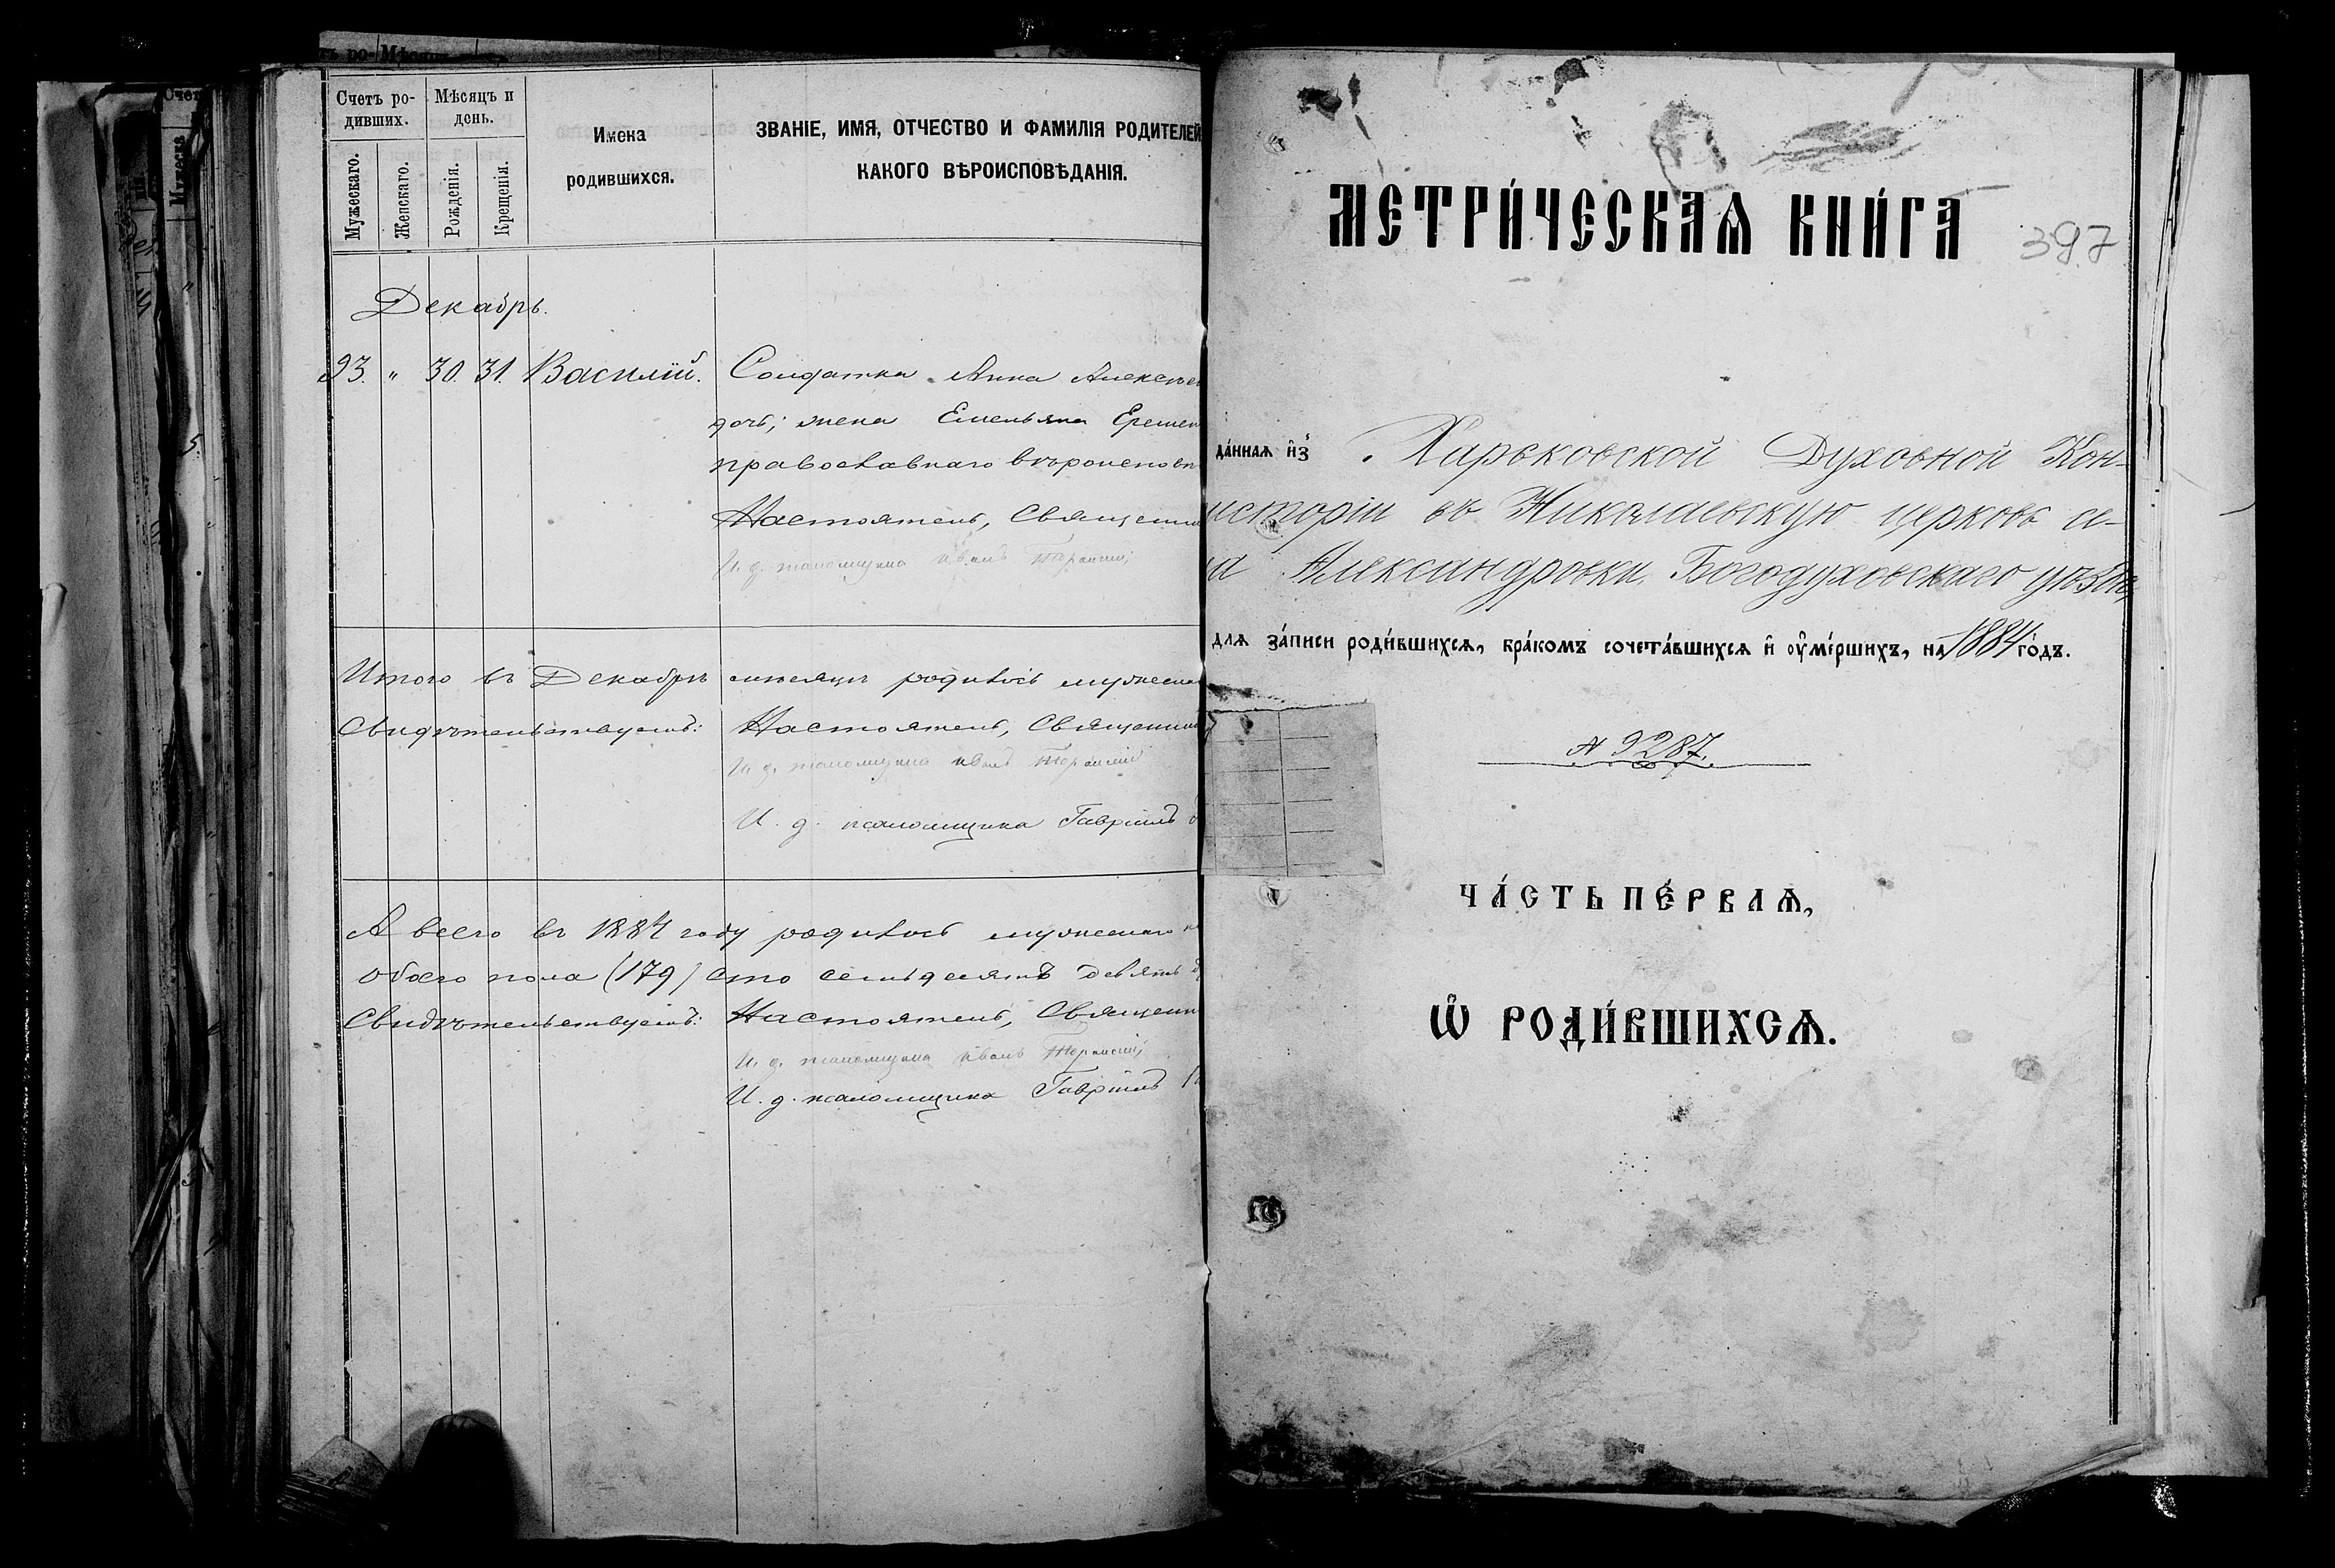 Счетъ ро-
дившихъ.
Мѣсяцъ и
день.
Мужескаго.
Женскаго.
Рожденія.
Крещенія.
Имена
родившихся.
ЗВАНІЕ, ИМЯ, ОТЧЕСТВО И ФАМИЛІЯ РОДИТЕЛЕЙ
КАКОГО ВѢРОИСПОВѢДАНІЯ.
Декабрь.
23. " 30. 31. Василій. Солдатка Анна Алексѣе
дочь; жена Емельяна Ерешен
православнаго вѣроисповѣ
Настоятель, Священни
И. д. псаломщика Иванъ
Итого въ Декабрѣ мѣсяцѣ родилось мужеска
Свидѣтельствуемъ: Настоятель, Священни
И. д. псаломщика Иванъ
И. д. псаломщика Гавріилъ
А всего въ 1884 году родилось мужескаго
обоего пола (179) сто семьдесятъ девять
Свидѣтельствуемъ: Настоятель, Священн
И. д. псаломщика Иванъ
И. д. псаломщика Гавріилъ
МЕТРИ́ЧЕСКАѦ КНИ́ГА
397
да́ннаѧ и҆з̾ Харьковской Духовной Кон-
исторіи въ Николаевскую церковь се-
ла Александровки, Богодуховскаго уѣзда,
длѧ за́писи роди́вшихсѧ, бра́комъ сочета́вшихсѧ и҆ ᲂу҆ме́ршихъ, на 1884 го́дъ.
№ 9287.
ЧА́СТЬ ПЕ́РВАѦ,
Ѡ҆ РОДИ́ВШИХСѦ.